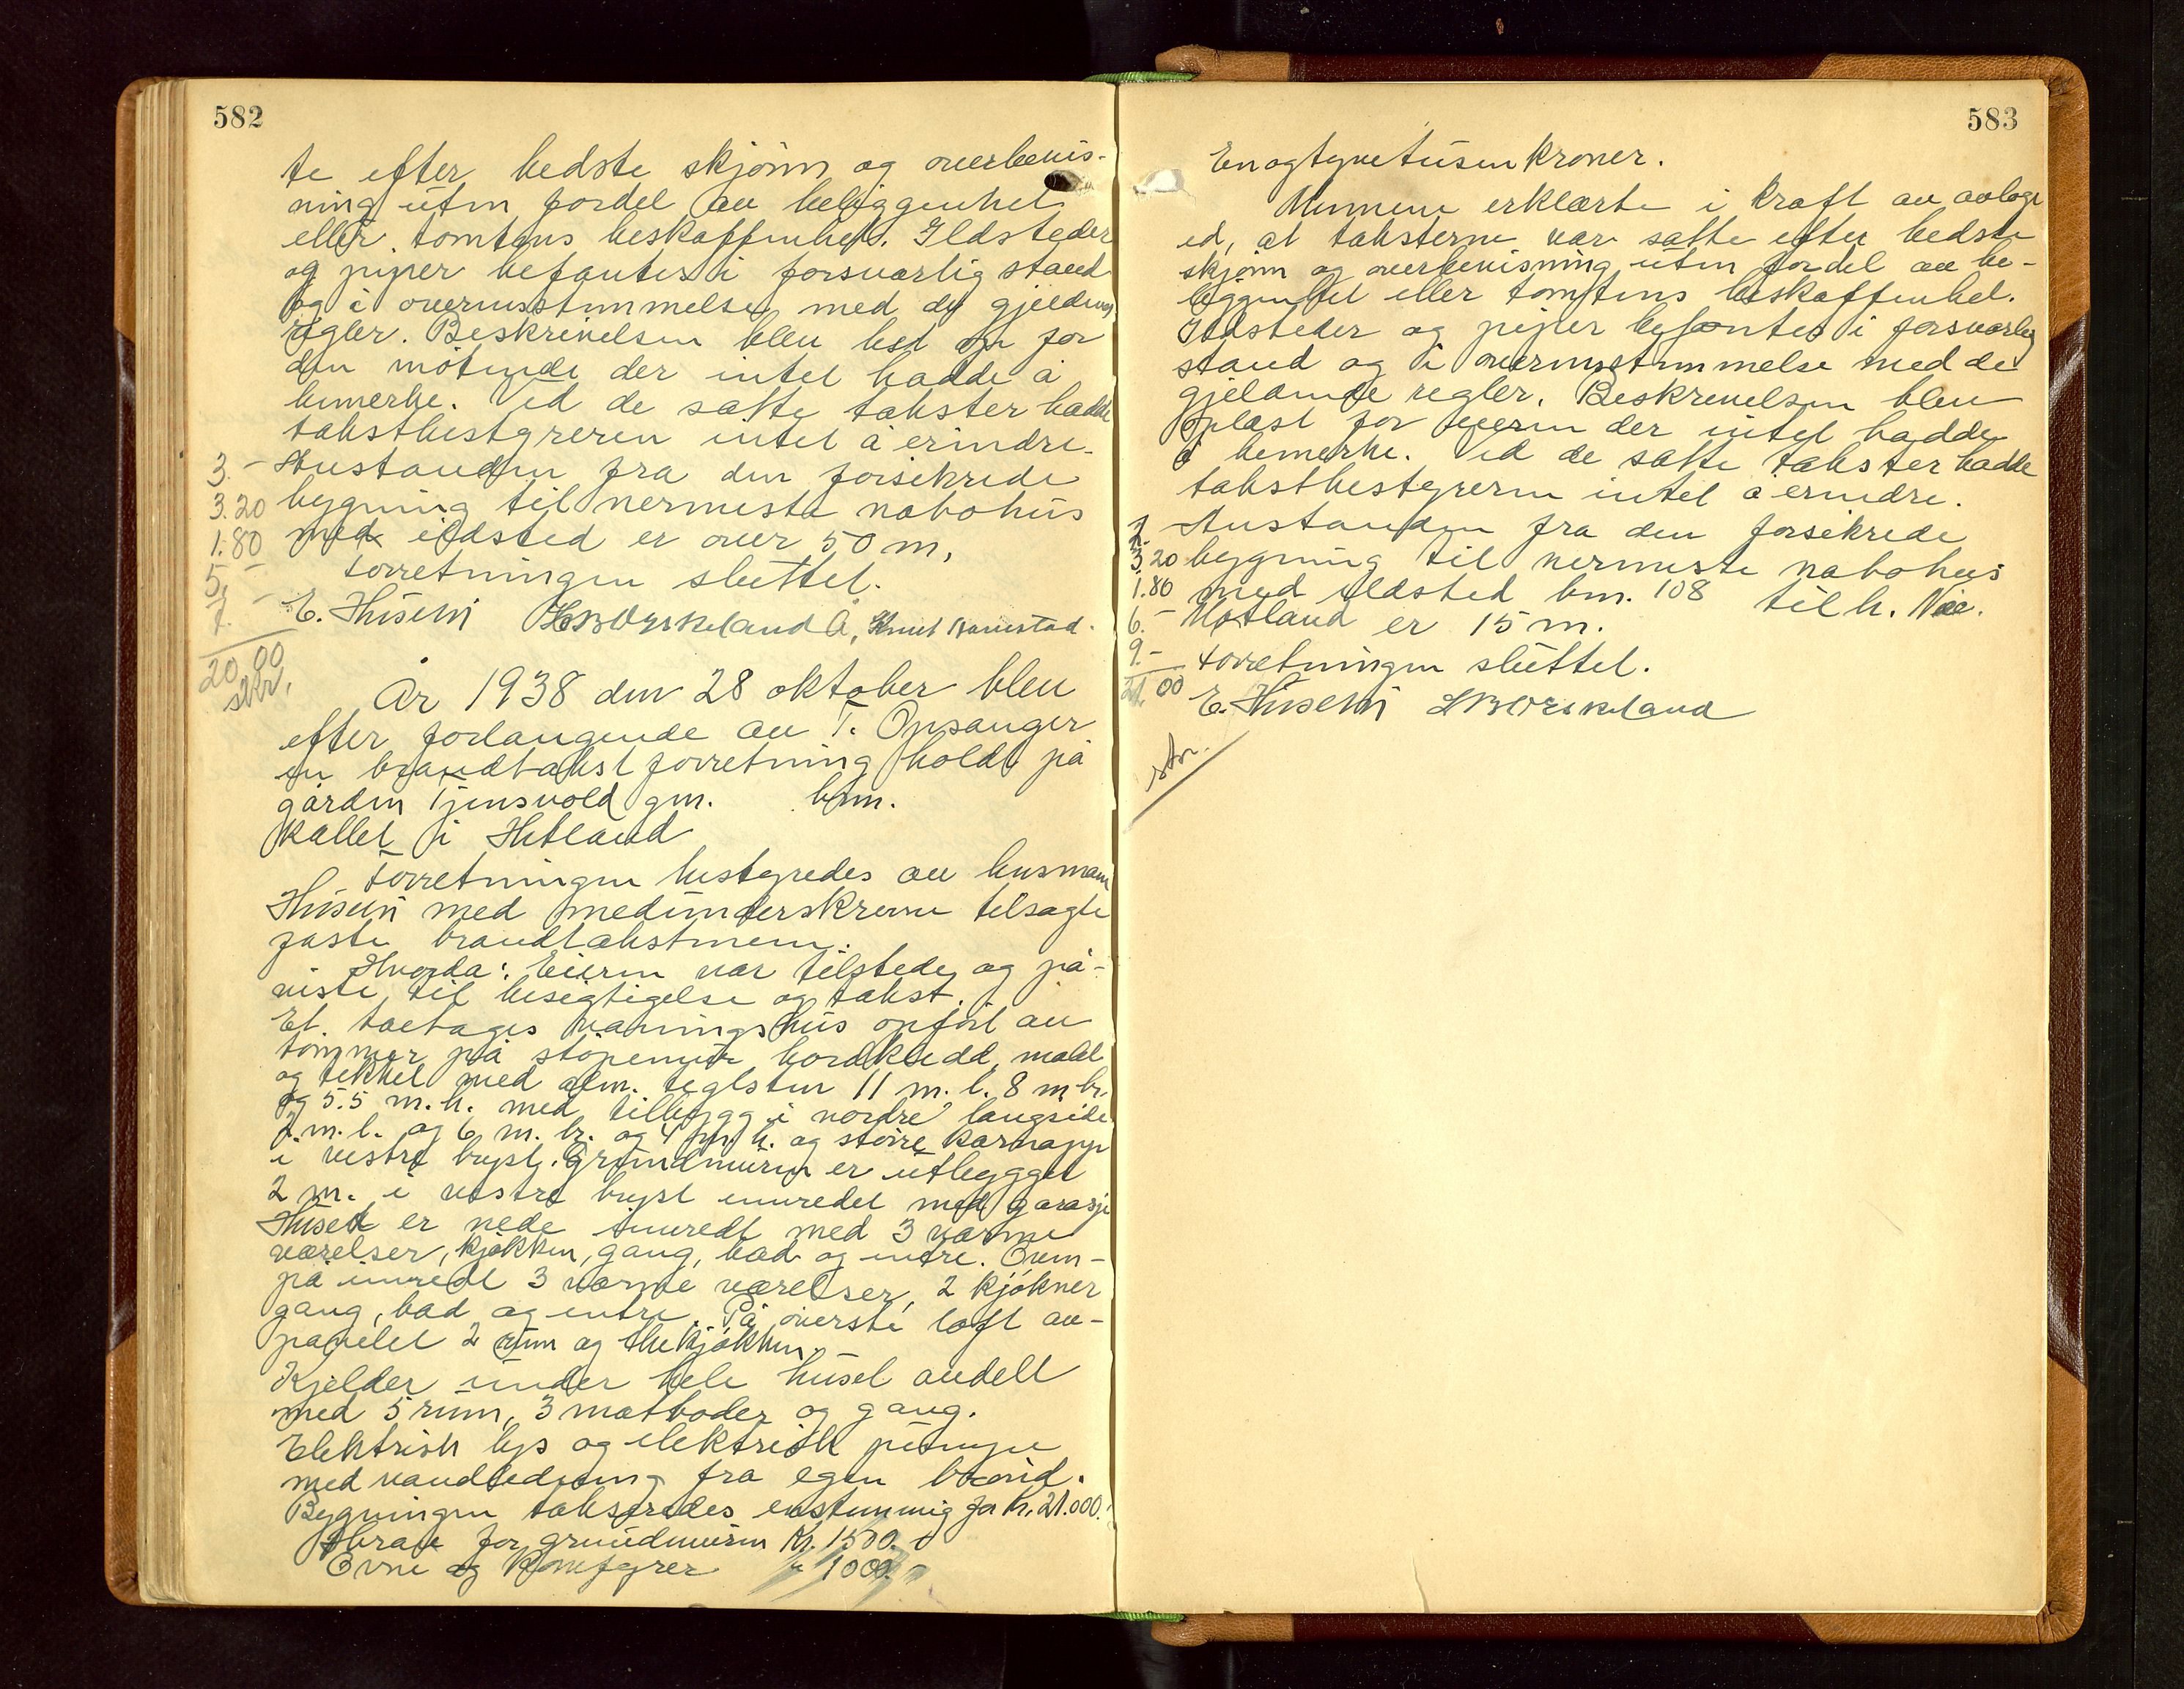 582
te efter bedste skjönn og overbevis-
ning uten fordel av beliggenhet
eller tomtens beskaffenhet. Ildsteder
og piper befantes i forsvarlig stand
og i overensstemmelse med de gjeldende
regler. Beskrivelsen blev lest op for
den mötende der intet hadde å
bemerke. Ved de satte takster hadde
takstbestyreren intet å erindre.
3.- Avstanden fra den forsikrede
3.20 bygning til nermeste nabohus
1.80 med ildsted er over 50 m.
5.- Forretningen sluttet.
7.- E. Husebö Knut
20.00
År 1938 den 28 oktober blev
efter forlangende av T. Opsanger
en brandtakstforretning holdt på
gården Tjensvold gnr. bnr.
kallet i Hetland
Forretningen bestyredes av lensmann
Husebö med medunderskrevne tilsagte
faste brandtakstmenn.
Hvorda: Eieren var tilstede og på-
viste til besigtigelse og takst.
Et toetages våningshus opfört av
tömmer på stöpemur bordkledd, malt
og tekket med alm. teglsten 11 m. l. 8 m br.
og 5.5 m. h. med tilbygg i nordre langside
2. m. l. og 6 m. br. og 4 m. h. og större karnapp
i vestre bryst. Grundmuren er utbygget
2 m. i vestre bryst innredet med garasje
Huset er nede innredt med 3 varme
værelser, kjökken, gang, bad og entre. Oven-
på innredt 3 varme værelser, 2 kjökner
gang, bad og entre. På överste loft av-
panelet 2 rum og tekjökken.
Kjelder under hele huset avdelt
med 5 rum, 3 matboder og gang.
Elektrisk lys og elektrisk pumpe
med vandledning fra egen brönd.
Bygningen takseredes enstemmig for kr. 21.000.-
Herav for grundmuren kr. 1500.-
Ovne og komfyrer " 1000.-
583
Enogtyvetusen kroner.
Mennene erklærte i kraft av avlagt
ed, at taksterne var satte efter bedste
skjönn og overbevisning uten fordel av be-
liggenhet eller tomtens beskaffenhet.
Ildsteder og piper befantes i forsvarlig
stand og i overensstemmelse med de
gjeldende regler. Beskrivelsen blev
oplæst for eieren der intet hadde
å bemerke. Ved de satte takster hadde
takstbestyreren intet å erindre.
Avstanden fra den forsikrede
3.20 bygning til nermeste nabohus
1.80 med ildsted bnr. 108 tilh.
6.- Motland er 15 m.
9.- Forretningen sluttet.
21.00 E. Husebö